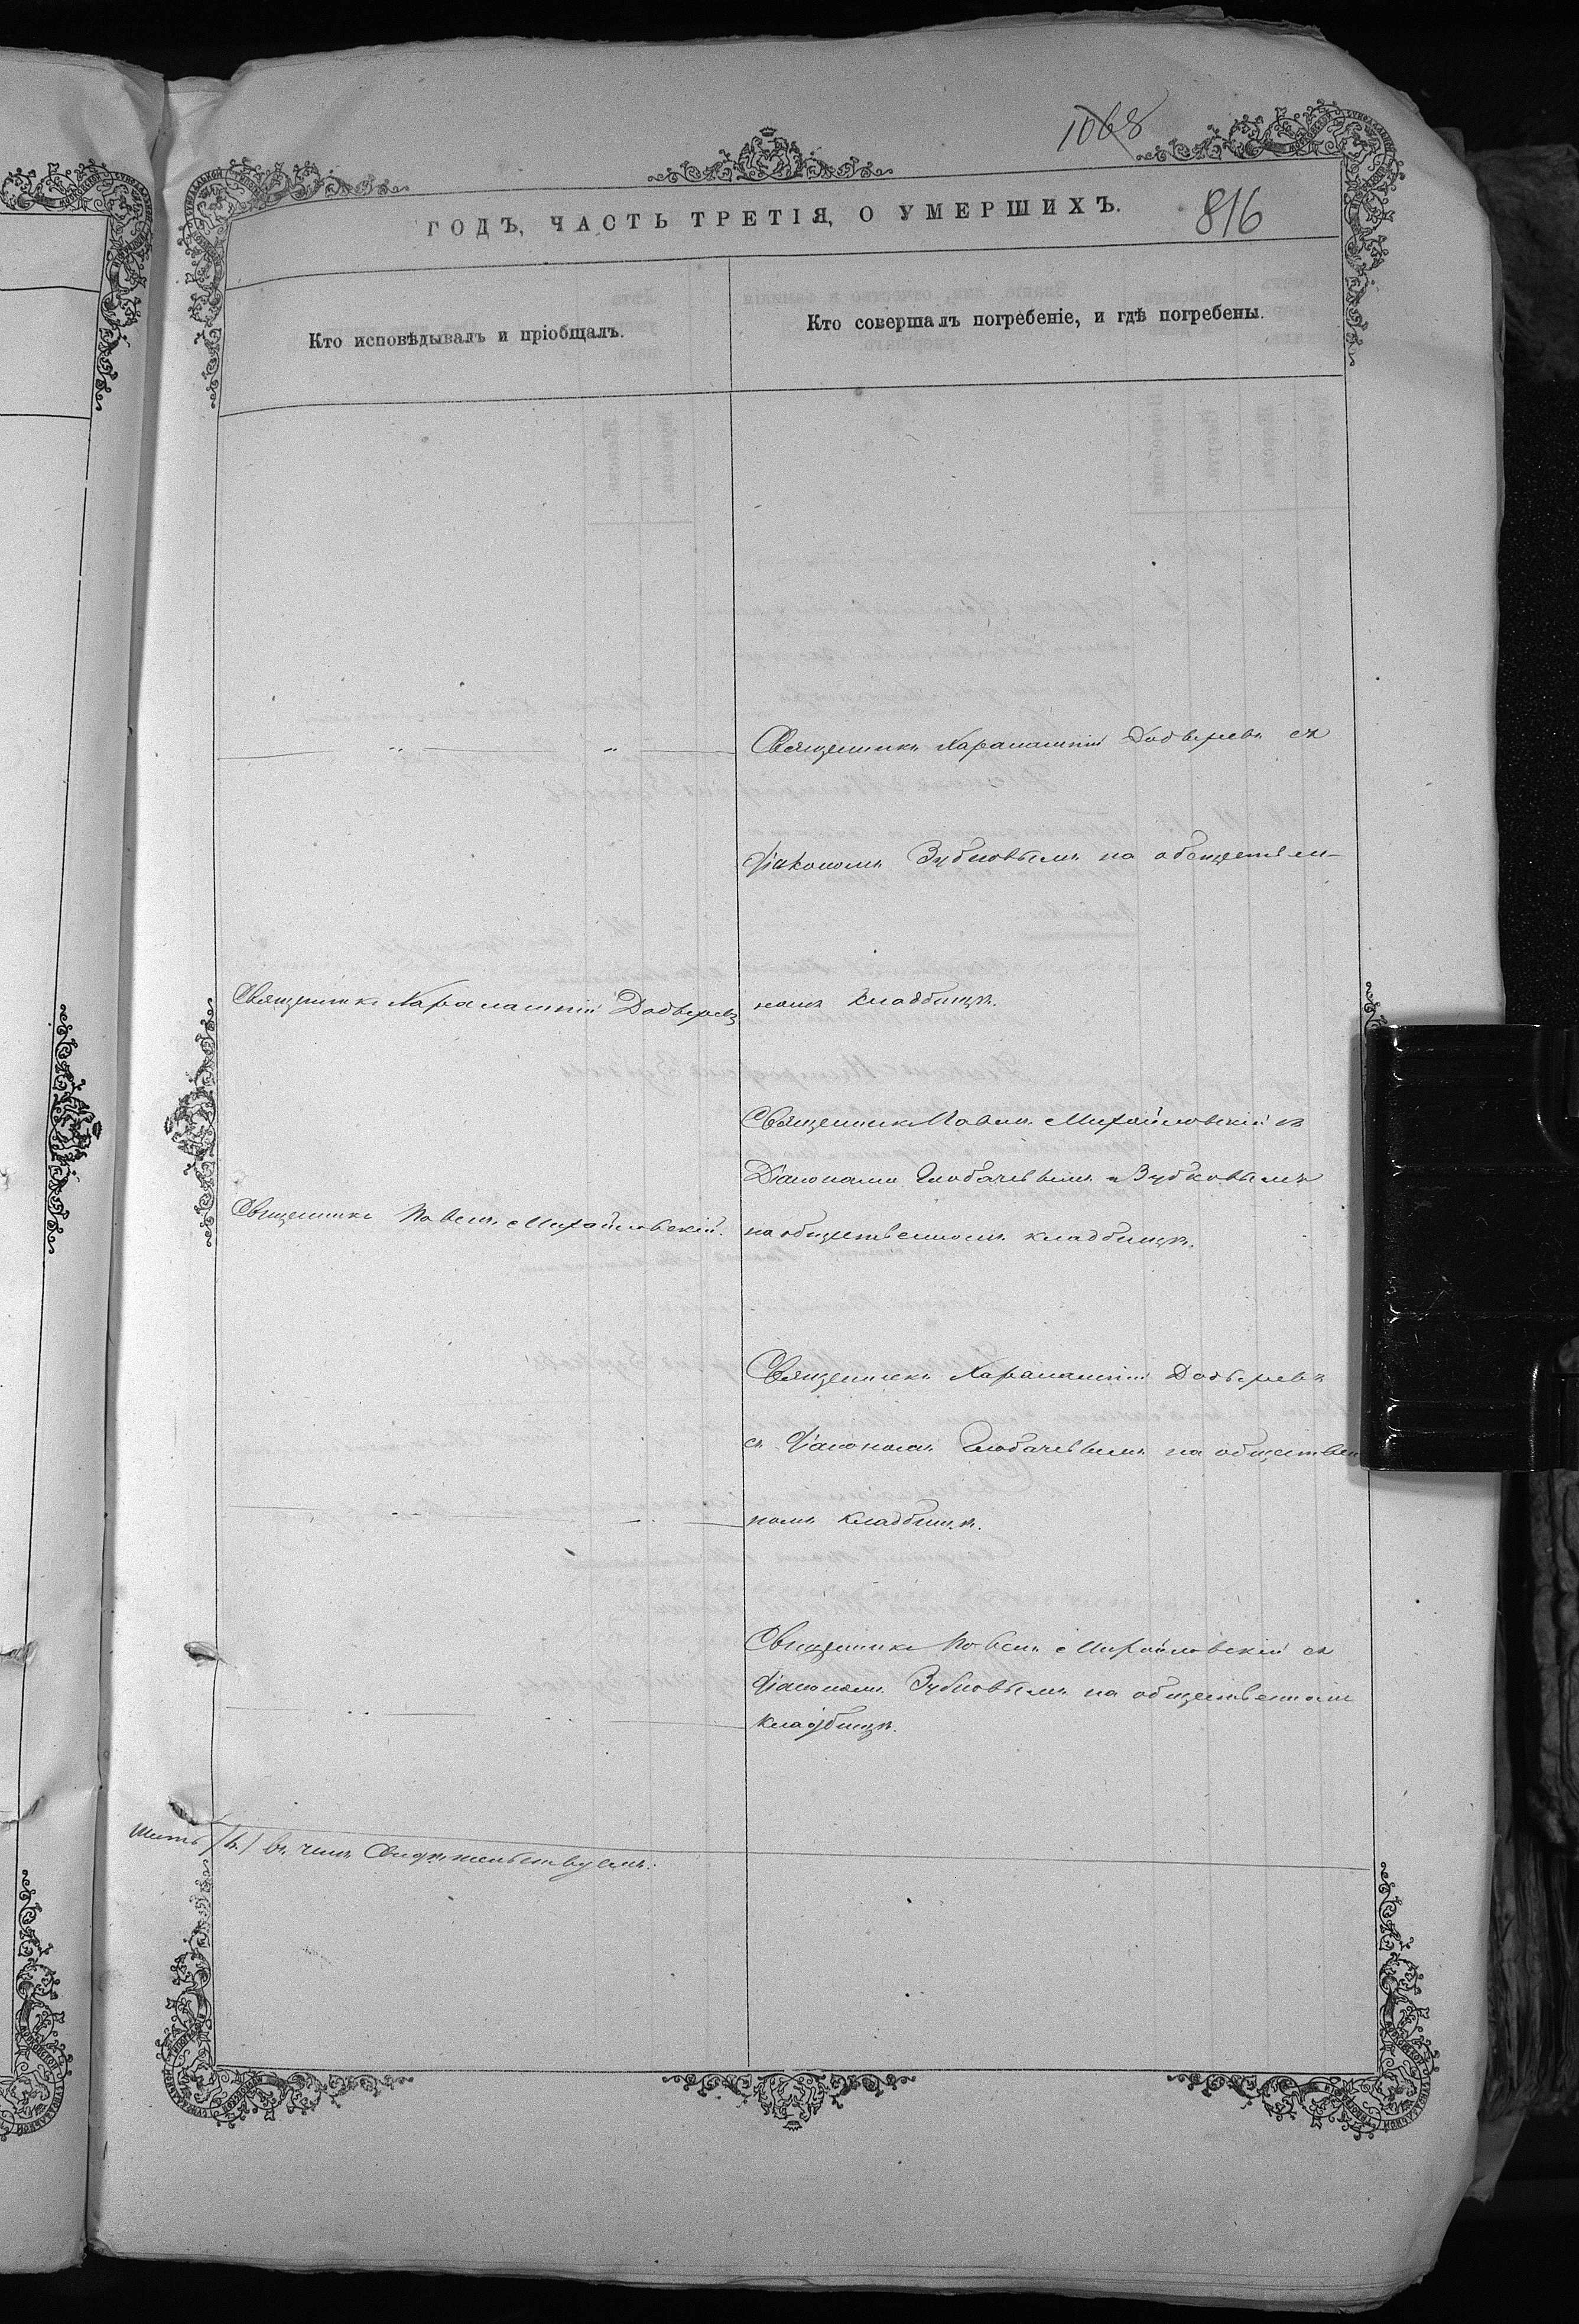 1068
816
ГОДЪ, ЧАСТЬ ТРЕТІЯ, О УМЕРШИХЪ.
Кто исповѣдывалъ и пріобщалъ.
Кто совершалъ погребеніе, и гдѣ погребены.
Священникъ Харалампій съ
Діакономъ Зубковымъ на обществен-
номъ кладбищѣ.
Священникъ Харалампій
Священникъ Павелъ Михайловскій съ
Діаконами и Зубковымъ
на общественномъ кладбищѣ.
Священникъ Павелъ Михайловскій.
Священникъ Харалампій
съ Діакономъ на обществен
номъ кладбищѣ.
Священникъ Павелъ Михайловскій съ
Діакономъ Зубковымъ на общественномъ
кладбищѣ.
шесть /6./ въ чемъ Свидѣтельствуемъ: